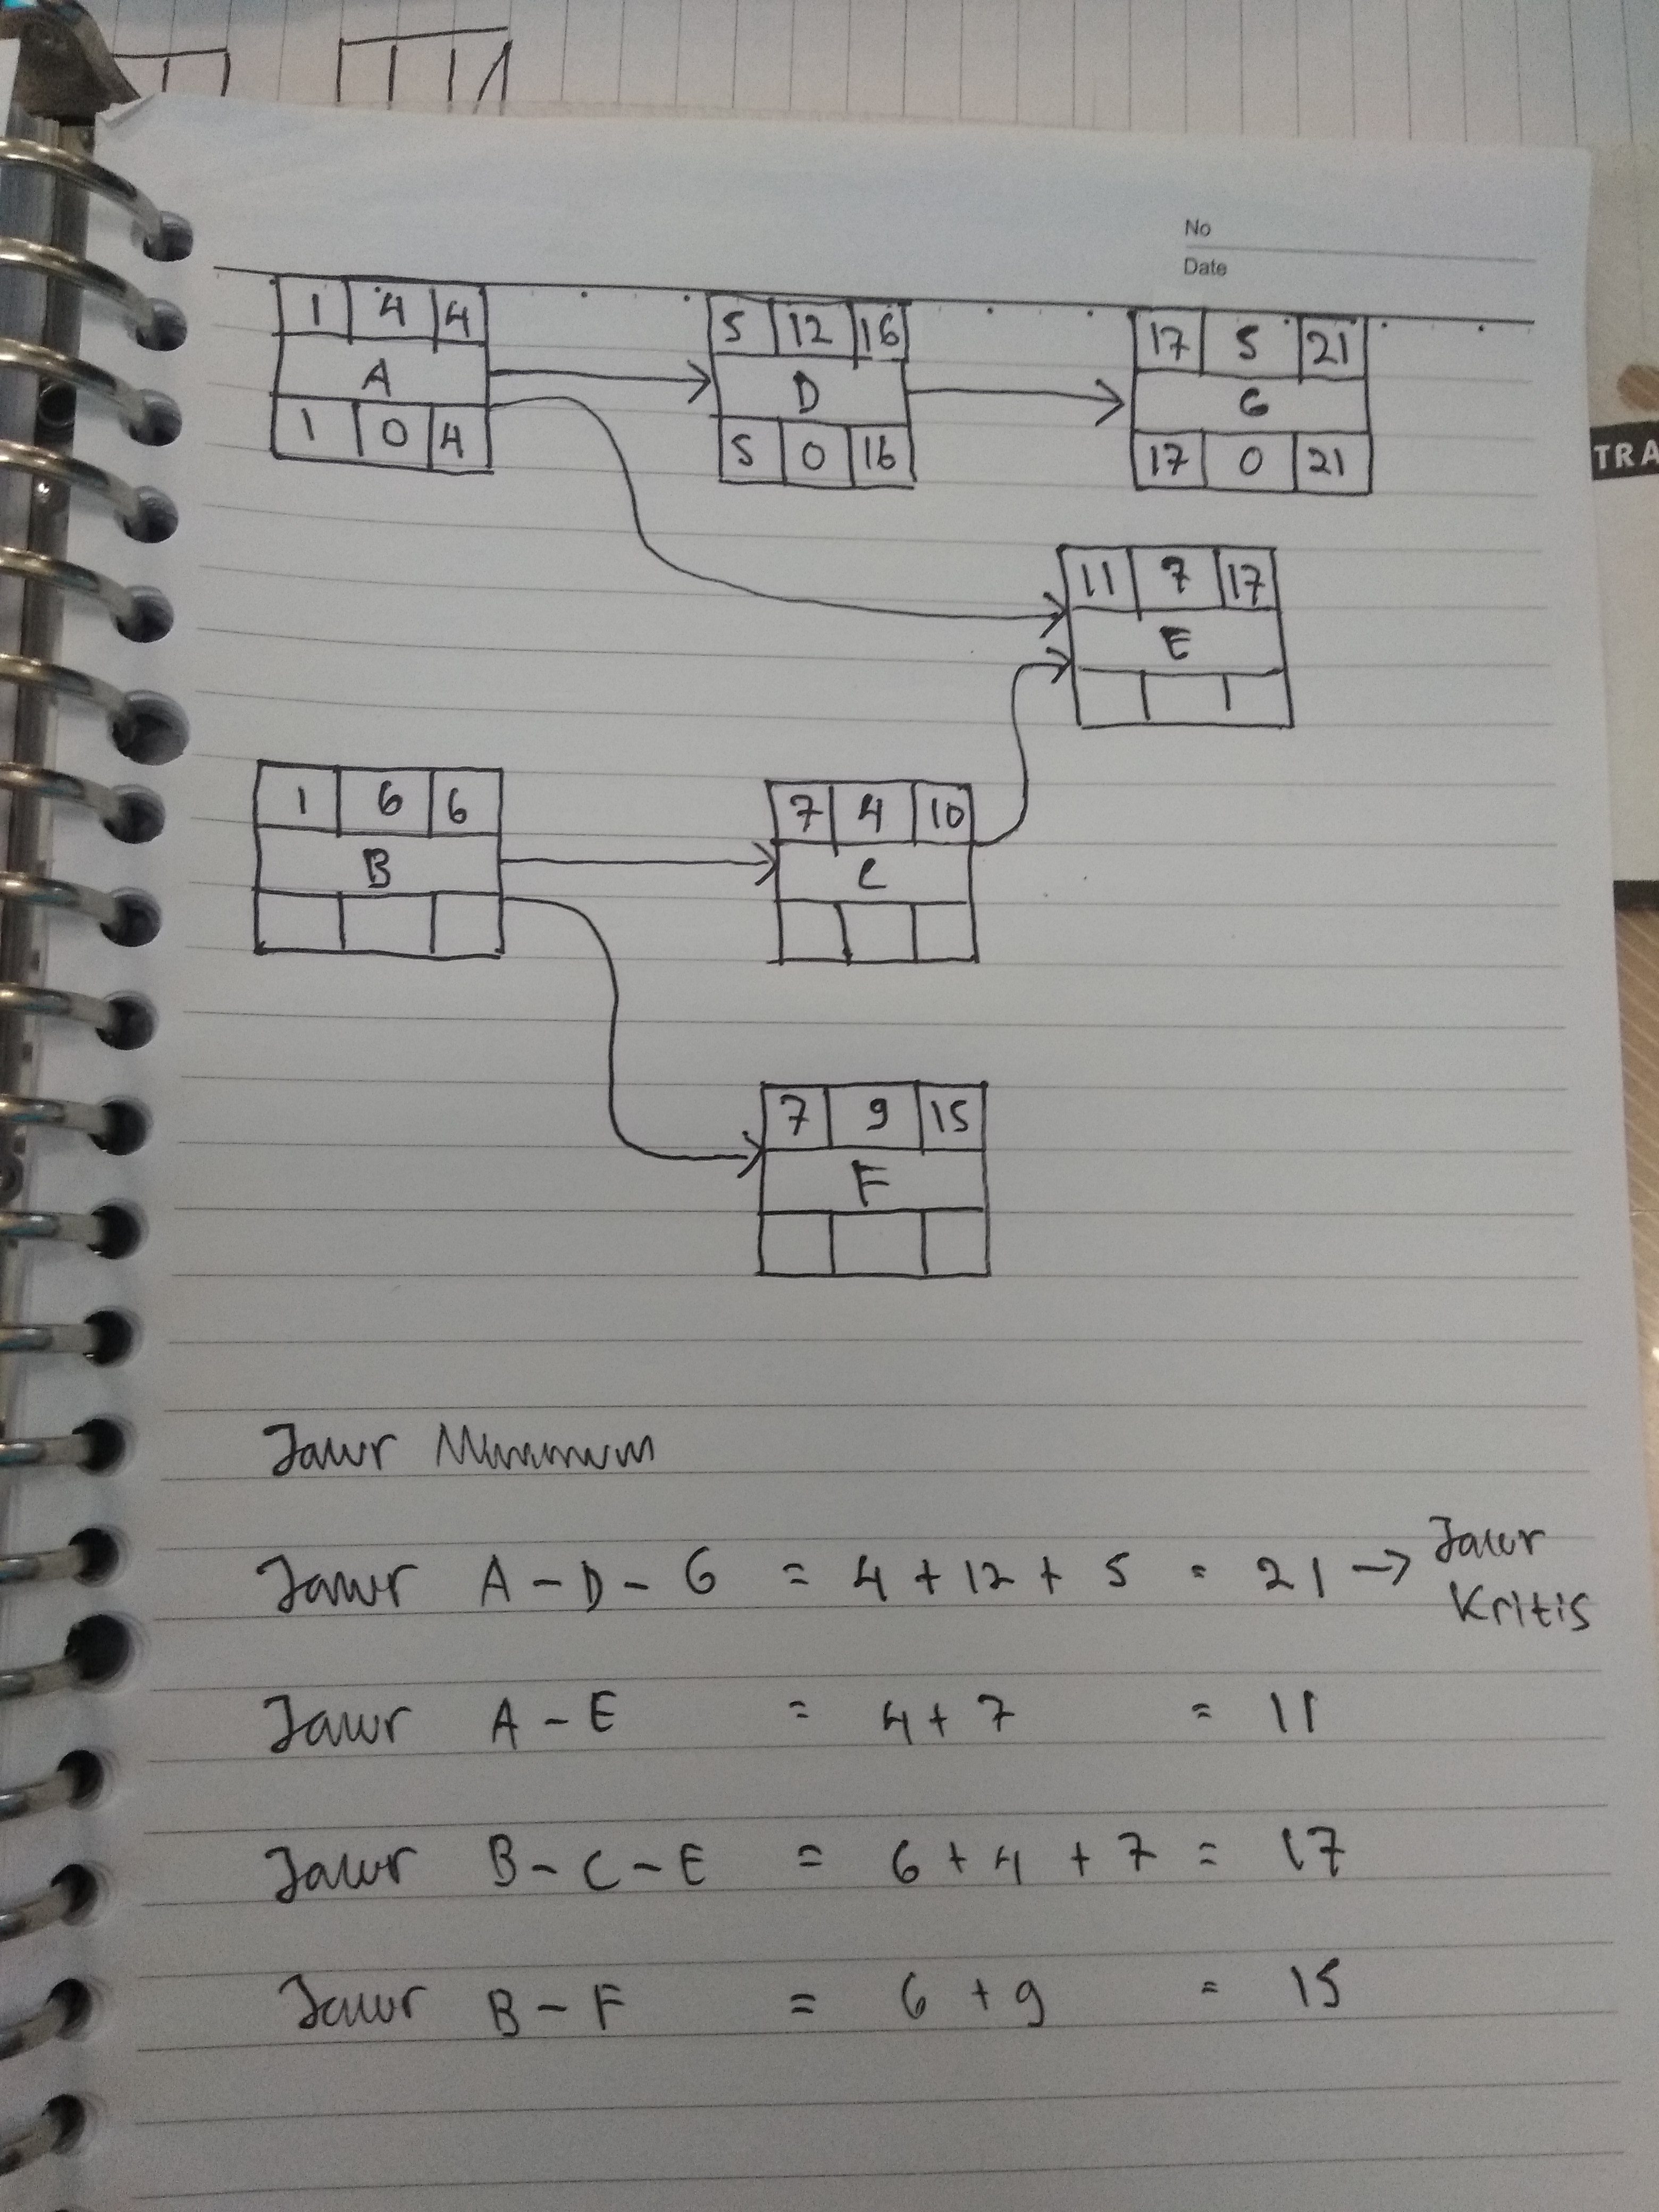 No
Date
1 4 4
A
1 0 4
5 12 16
D
5 0 16
17 5 21
G
17 0 21
TRA
11 7 17
E
1 6 6
B
7 4 10
C
7 9 15
F
Jalur Minimum
Jalur A - D - G = 4 + 12 + 5 = 21 → Jalur
Kritis
Jalur A - E = 4 + 7 = 11
Jalur B - C - E = 6 + 4 + 7 = 17
Jalur B - F = 6 + 9 = 15